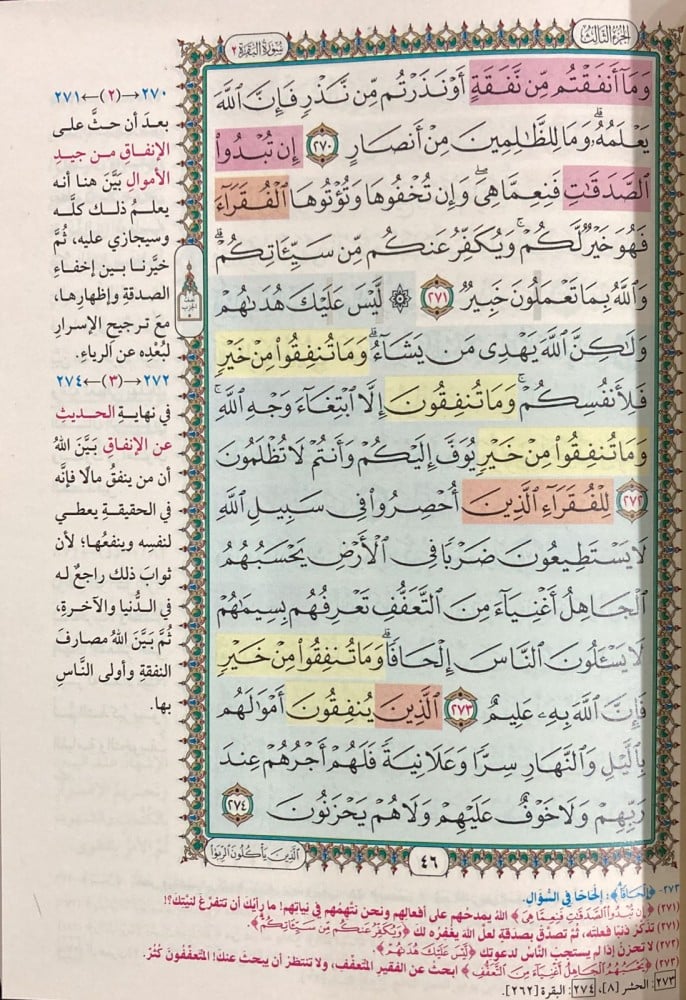 الجزء الثالث
سورة البقرة ٢
وَمَآ أَنفَقْتُم مِّن نَّفَقَةٍ أَوْ نَذَرْتُم مِّن نَّذْرٍ فَإِنَّ ٱللَّهَ
يَعْلَمُهُۥۗ وَمَا لِلظَّٰلِمِينَ مِنْ أَنصَارٍ ٢٧٠ إِن تُبْدُوا۟
ٱلصَّدَقَٰتِ فَنِعِمَّا هِىَۖ وَإِن تُخْفُوهَا وَتُؤْتُوهَا ٱلْفُقَرَآءَ
فَهُوَ خَيْرٌ لَّكُمْۚ وَيُكَفِّرُ عَنكُم مِّن سَيِّـَٔاتِكُمْۗ
وَٱللَّهُ بِمَا تَعْمَلُونَ خَبِيرٌ ٢٧١ ۞ لَّيْسَ عَلَيْكَ هُدَىٰهُمْ
وَلَٰكِنَّ ٱللَّهَ يَهْدِى مَن يَشَآءُۗ وَمَا تُنفِقُوا۟ مِنْ خَيْرٍ
فَلِأَنفُسِكُمْۚ وَمَا تُنفِقُونَ إِلَّا ٱبْتِغَآءَ وَجْهِ ٱللَّهِۚ
وَمَا تُنفِقُوا۟ مِنْ خَيْرٍ يُوَفَّ إِلَيْكُمْ وَأَنتُمْ لَا تُظْلَمُونَ
٢٧٢ لِلْفُقَرَآءِ ٱلَّذِينَ أُحْصِرُوا۟ فِى سَبِيلِ ٱللَّهِ
لَا يَسْتَطِيعُونَ ضَرْبًا فِى ٱلْأَرْضِ يَحْسَبُهُمُ
ٱلْجَاهِلُ أَغْنِيَآءَ مِنَ ٱلتَّعَفُّفِ تَعْرِفُهُم بِسِيمَٰهُمْ
لَا يَسْـَٔلُونَ ٱلنَّاسَ إِلْحَافًاۗ وَمَا تُنفِقُوا۟ مِنْ خَيْرٍ
فَإِنَّ ٱللَّهَ بِهِۦ عَلِيمٌ ٢٧٣ ٱلَّذِينَ يُنفِقُونَ أَمْوَٰلَهُم
بِٱلَّيْلِ وَٱلنَّهَارِ سِرًّا وَعَلَانِيَةً فَلَهُمْ أَجْرُهُمْ عِندَ
رَبِّهِمْ وَلَا خَوْفٌ عَلَيْهِمْ وَلَا هُمْ يَحْزَنُونَ ٢٧٤
٤٦
ٱلَّذِينَ يَأْكُلُونَ ٱلرِّبَوٰا۟
٢٧٠←(٢)→٢٧١
بعدَ أن حثَّ على
الإنفاقِ من جيدِ
الأموالِ بَيَّنَ هنا أنه
يعلمُ ذلك كلَّه
وسيجازي عليه، ثُمَّ
خيَّرنا بين إخفاءِ
الصدقةِ وإظهارِها،
معَ ترجيحِ الإسرارِ
لبُعْدِه عن الرياءِ.
٢٧٢←(٣)→٢٧٤
في نهايةِ الحديثِ
عن الإنفاقِ بَيَّنَ اللهُ
أن من ينفقُ مالًا فإنَّه
في الحقيقةِ يعطي
لنفسِه وينفعُها؛ لأن
ثوابَ ذلك راجعٌ له
في الدُّنيا والآخرةِ،
ثُمَّ بَيَّنَ اللهُ مصارفَ
النفقةِ وأولى النَّاسِ
بها.
٢٧٣- ﴿إِلْحَافًا﴾: إلحاحًا في السُّؤالِ.
(٢٧١) ﴿إِن تُبْدُوا۟ ٱلصَّدَقَٰتِ فَنِعِمَّا هِىَ﴾ اللهُ يمدحُهم على أفعالِهم ونحن نتَّهمُهم في نياتِهم! ما رأيُك أن تتفرَّغَ لنيَّتِك؟!
(٢٧١) تذكَّر ذنبًا فعلتَه، ثُمَّ تصدَّق بصدقةٍ لعلَّ اللهَ يغفرُه لك ﴿وَيُكَفِّرُ عَنكُم مِّن سَيِّـَٔاتِكُمْ﴾.
(٢٧٢) لا تحزنْ إذا لم يستجبْ النَّاسُ لدعوتِك ﴿لَّيْسَ عَلَيْكَ هُدَىٰهُمْ﴾.
(٢٧٣) ﴿يَحْسَبُهُمُ ٱلْجَاهِلُ أَغْنِيَآءَ مِنَ ٱلتَّعَفُّفِ﴾ ابحثْ عن الفقيرِ المتعفِّفِ، ولا تنتظرْ أن يبحثَ عنك! المتعفِّفونَ كُثُرٌ.
٢٧٣: الحشر [٨]، ٢٧٤: البقرة [٢٦٢].